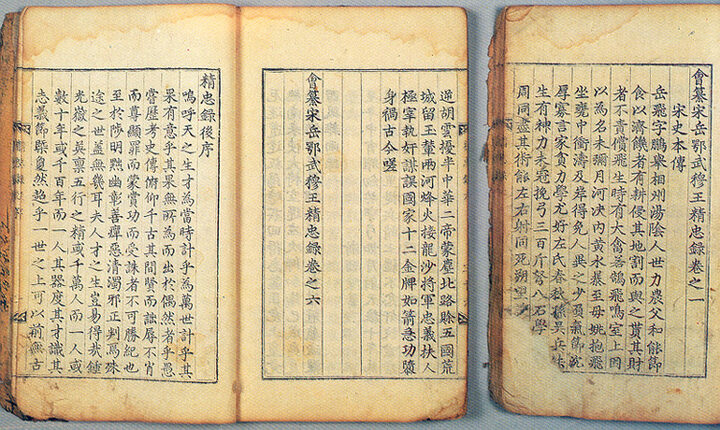 會纂宋岳鄂武穆王精忠錄卷之一
宋史本傳
岳飛字鵬舉相州湯陰人世力農父和能節
食以濟饑者有耕侵其地割而與之貰其財
者不責償飛生時有大禽若鵠飛鳴室上因
以為名未彌月河决内黃水暴至母姚抱飛
坐甕中衝濤及岸得免人異之少負氣節沉
厚寡言家貧力學尤好左氏春秋孫吳兵法
生有神力未冠挽弓三百斤弩八石學
周同盡其術能左右射同死朔望
逆胡雲擾半中華二帝蒙塵北路賖五國荒
城留王輦兩河烽火接龍沙將軍忠義扶人
極宰執奸謀誤國家十二金牌如箭急功隳
身禍古今嗟
會纂宋岳鄂武穆王精忠錄卷之六
精忠錄後序
嗚呼天之生才為當時計乎為萬世計乎其
果有意乎其果無所為而出於偶然者乎愚
嘗歷考史傳俯仰千古其間賢而詘辱不肖
而尊顯罪而蒙賞功而受誅者不可勝紀也
至於陟明黜幽彰善癉惡清濁邪正判爲殊
途之世蓋無幾耳夫人才之生豈易得哉鍾
光嶽之稟五行之精或千萬人而一人或
數十年或千百年而一人其器度其才識其
志義節槩夐然超乎一世之上可以前無古